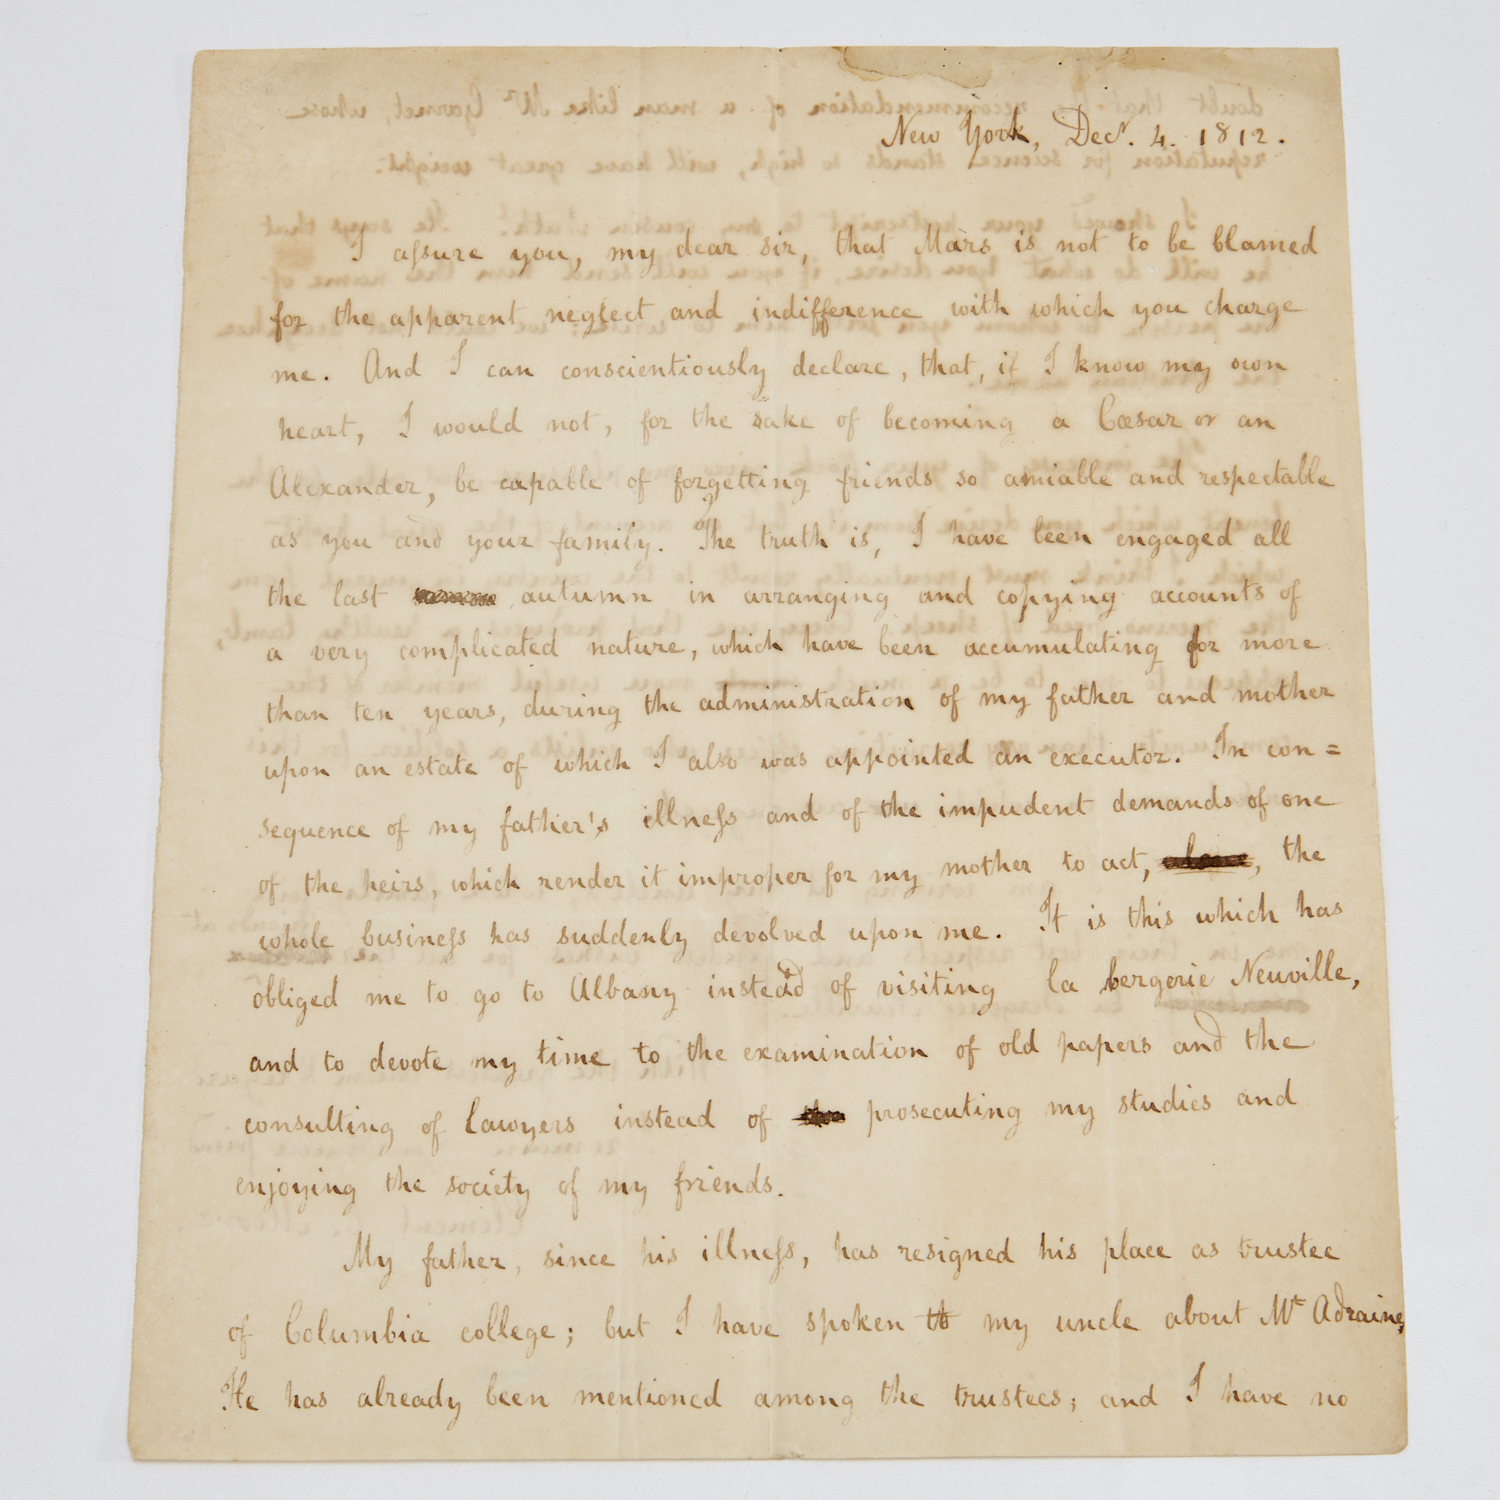 New York, Decr. 4. 1812.
I aſsure you, my dear sir, that Mars is not to be blamed
for the apparent neglect and indifference with which you charge
me. And I can conscientiously declare, that, if I know my own
heart, I would not, for the sake of becoming a Cæsar or an
Alexander, be capable of forgetting friends so amiable and respectable
as you and your family. The truth is, I have been engaged all
the last autumn in arranging and copying accounts of
a very complicated nature, which have been accumulating for more
than ten years, during the administration of my father and mother
upon an estate of which I also was appointed an executor. In con=
sequence of my father's illneſs and of the impudent demands of one
of the heirs, which render it improper for my mother to act, alone, the
whole busineſs has suddenly devolved upon me. It is this which has
obliged me to go to Albany instead of visiting la bergerie Neuville,
and to devote my time to the examination of old papers and the
consulting of lawyers instead of the prosecuting my studies and
enjoying the society of my friends.
My father, since his illneſs, has resigned his place as trustee
of Columbia college; but I have spoken to my uncle about Mr Adraine,
He has already been mentioned among the trustees; and I have no